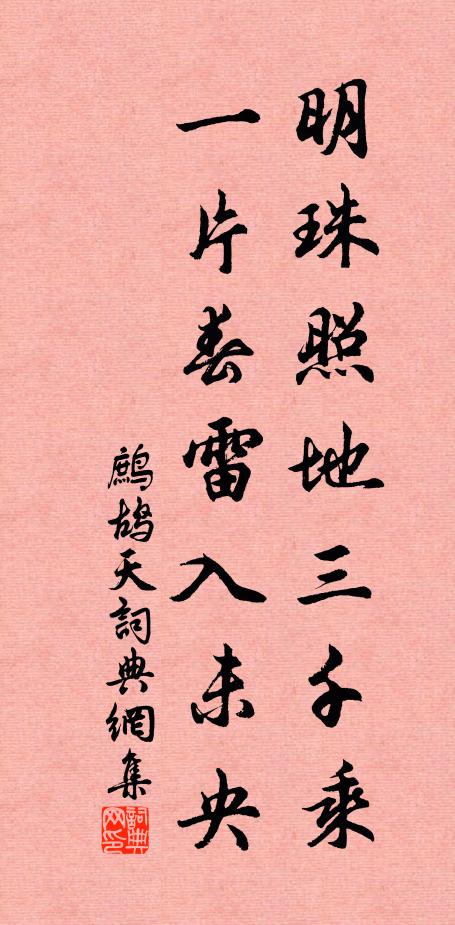 明珠照地三千乘
一片春雷入未央
鷓鴣天詞典網集
詞典网印